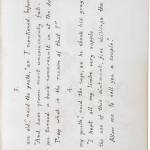 3.
are old," said the youth, "as I mentioned before
"And have grown most uncommonly fat:
you turned a back-somersault in at the do
Pray what is the reason of that?"
4.
my youth," said the sage, as he shook his gray
"I kept all my limbs very supple
the use of this ointment, five shillings the
Allow me to sell you a couple